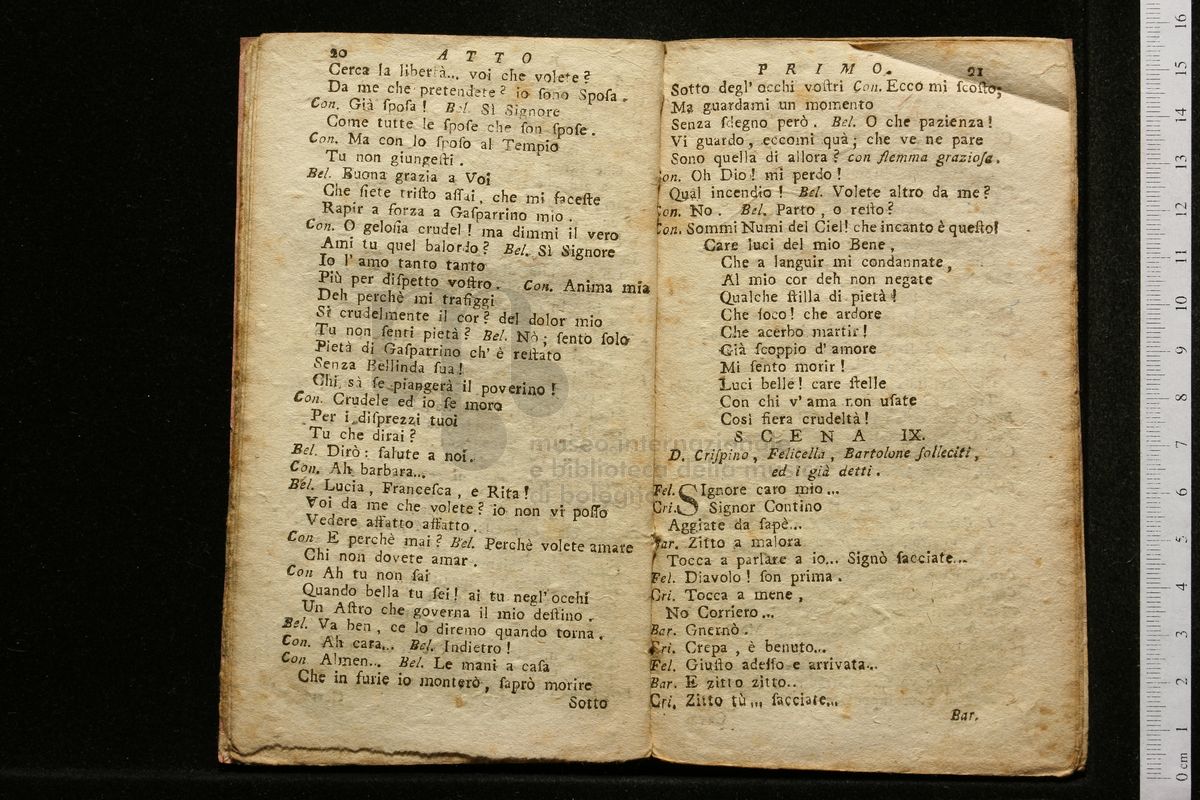 20 ATTO
Cerca la libertà... voi che volete?
Da me che pretendete? io ſono Spoſa.
Con. Già ſpoſa! Bel. Sì Signore
Come tutte le ſpoſe che ſon ſpoſe.
Con. Ma con lo ſpoſo al Tempio
Tu non giungeſti.
Bel. Buona grazia a Voi
Che ſiete triſto aſſai, che mi faceſte
Rapir a forza a Gaſparrino mio.
Con. O geloſia crudel! ma dimmi il vero
Ami tu quel balordo? Bel. Sì Signore
Io l'amo tanto tanto
Più per diſpetto voſtro. Con. Anima mia
Deh perchè mi trafiggi
Sì crudelmente il cor? del dolor mio
Tu non ſenti pietà? Bel. Nò; ſento ſolo
Pietà di Gaſparrino ch'è reſtato
Senza Bellinda ſua!
Chi sà ſe piangerà il poverino!
Con. Crudele ed io ſe moro
Per i diſprezzi tuoi
Tu che dirai?
Bel. Dirò: ſalute a noi.
Con. Ah barbara...
Bel. Lucia, Franceſca, e Rita!
Voi da me che volete? io non vi poſſo
Vedere affatto affatto.
Con. E perchè mai? Bel. Perchè volete amare
Chi non dovete amar.
Con Ah tu non ſai
Quando bella tu ſei! ai tu negl'occhi
Un Aſtro che governa il mio deſtino.
Bel. Va ben, ce lo diremo quando torna.
Con. Ah cara... Bel. Indietro!
Con. Almen... Bel. Le mani a caſa
Che in furie io monterò, ſaprò morire
Sotto
PRIMO. 21
Sotto degl'occhi voſtri Con. Ecco mi ſcoſto;
Ma guardami un momento
Senza ſdegno però. Bel. O che pazienza!
Vi guardo, eccomi quà; che ve ne pare
Sono quella di allora? con flemma grazioſa.
Con. Oh Dio! mi perdo!
Qual incendio! Bel. Volete altro da me?
Con. No. Bel. Parto, o reſto?
Con. Sommi Numi del Ciel! che incanto è queſto!
Care luci del mio Bene,
Che a languir mi condannate,
Al mio cor deh non negate
Qualche ſtilla di pietà!
Che foco! che ardore
Che acerbo martir!
Già ſcoppio d'amore
Mi ſento morir!
Luci belle! care ſtelle
Con chi v'ama non uſate
Così fiera crudeltà!
SCENA IX.
D. Criſpino, Felicella, Bartolone ſolleciti,
ed i già detti.
Fel. SIgnore caro mio...
Cri. Signor Contino
Aggiate da ſapè...
Bar. Zitto a malora
Tocca a parlare a io... Signò ſacciate...
Fel. Diavolo! ſon prima.
Cri. Tocca a mene,
No Corriero...
Bar. Gnernò.
Cri. Crepa, è benuto...
Fel. Giuſto adeſſo e arrivata...
Bar. E zitto zitto...
Cri. Zitto tù... ſacciate...
Bar.
museo internazionale
e biblioteca della musica
di bologna
0 cm 1 2 3 4 5 6 7 8 9 10 11 12 13 14 15 16